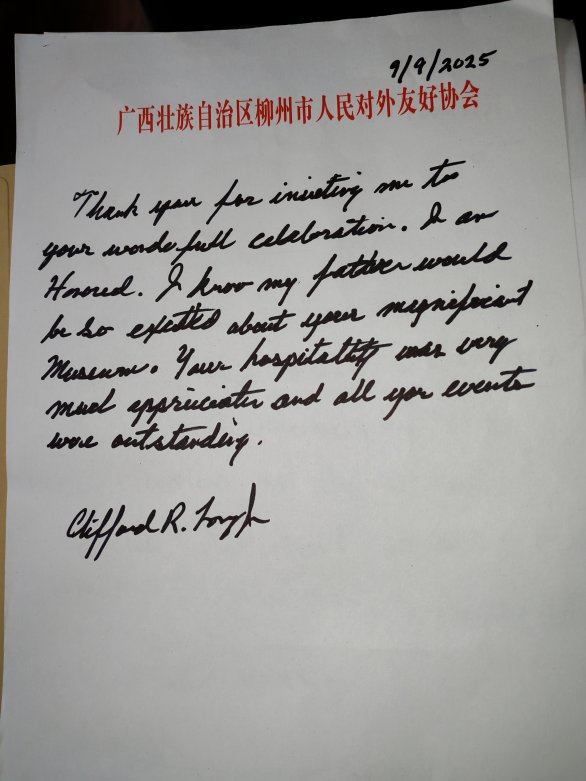 9/9/2025
广西壮族自治区柳州市人民对外友好协会
Thank you for inviting me to
your wonderfull celabration. I am
Honored. I know my father would
be so excited about your magnificant
Museum. Your hospitality was very
much appriciater and all yor events
were outstanding.
Clifford R.